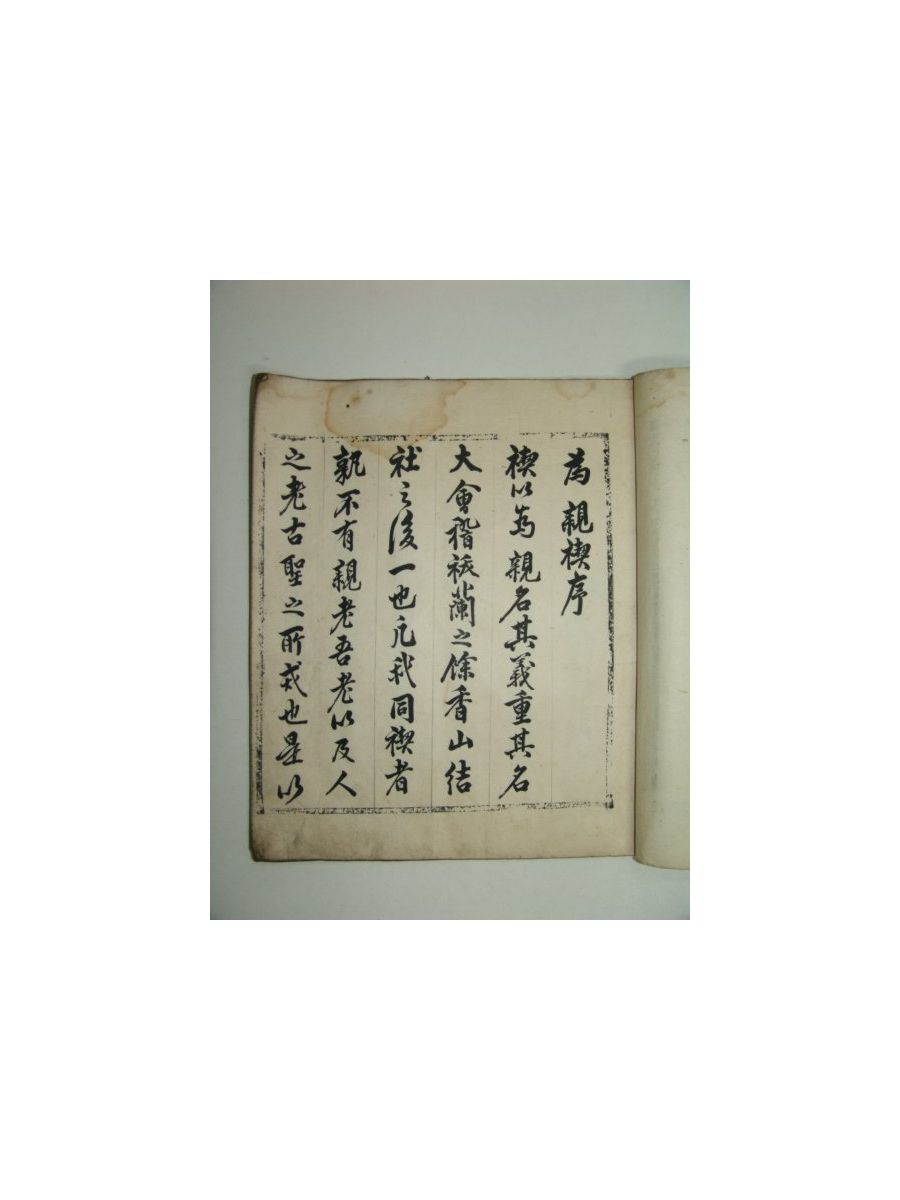 為 親禊序
禊以為 親名其義重其名
大會稽祓蘭之餘香山結
社之後一也凡我同禊者
孰不有親老吾老以及人
之老古聖之所戒也是以